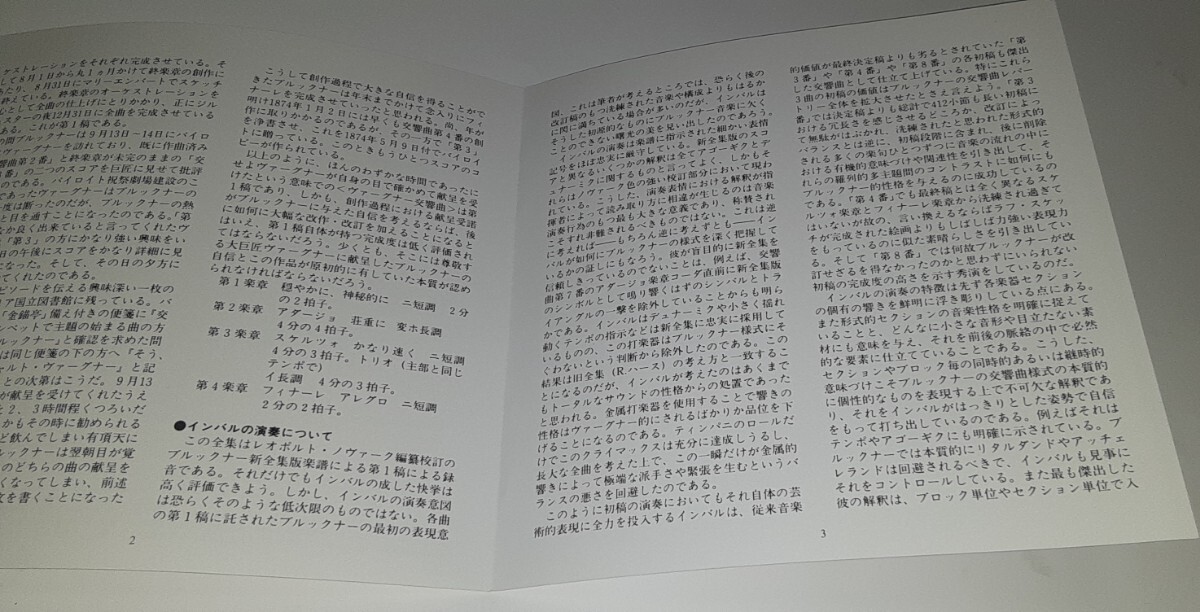 ケストレーションをそれぞれ完成させている。そ
して8月1日から丸1ヵ月かけて終楽章の創作に
あたり、8月31日にマリーエンバートでスケッチ
を終えている。終楽章のオーケストレーションを
として全曲の仕上げにとりかかり、正にジル
スターの夜12月31日に全曲を完成させている
ある。これが第1稿である。
の間ブルックナーは9月13日~14日にバイロ
ヴァーグナーを訪れており、既に作曲済み
響曲第2番」と終楽章が未完のままの「交
番」の二つのスコアを巨匠に見せて批評
のである。バイロイト祝祭劇場建設のこ
たヴァーグナーはブルックナーの
度は断ったのだが、ブルックナーの熱
と目を通すことになったのである。「第
なか良く出来ていると言ってくれたヴ
「第3」の方にかなり強い興味をい
日の午後にスコアをかなり詳細に見
になった。そして、その日の夕方に
てくれたのである。
ピソードを伝える興味深い一枚の
リア国立図書館に残っている。バ
「金錨亭」備え付きの便箋に「交
ンペットで主題の始まる曲の方
ルックナー」と確認を求めた問
は同じ便箋の下の方へ「そう、
ァルト・ヴァーグナー」と記
との次第はこうだ。9月13
が献呈を受けてくれたうえ
と2、3時間程くつろいだ
かもその時に勧められる
ど飲んでしまい有頂天に
ルックナーは翌朝目が覚
のどちらの曲の献呈を
くなってしまい、前述
文を書くことになった
2
こうして創作過程で大きな自信を得ることがで
きたブルックナーは年末までかけて念入りにフィ
ナーレを完成させていったと思われる。尚、年が
明け1874年1月2日には早くも交響曲第4番の創
作に取りかかるのであるが、その一方で「第3」
を浄書させ、これを1874年5月9日付でバイロイ
トに贈っている。このときもうひとつスコアのコ
ピーが作られている。
以上のように、ほんのわずかな時間であったに
せよヴァーグナーが自身の目で確かめて献呈を受
けたという意味での〈ヴァーグナー交響曲〉は第
1稿であり、しかも、創作過程における献呈受諾
がブルックナーに与えた自信を考えるならば、後
に如何に大幅な改作・改訂を加えることになると
はいえ、第1稿自体が持つ完成度は低く評価され
てはならないだろう。少くとも、そこには尊敬す
る大巨匠ヴァーグナーに献呈したブルックナーの
自信とこの作品が原初的に有していた本質が認め
られなければならないだろう。
第1楽章 穏やかに、神秘的に ニ短調 2分
の2拍子。
第2楽章 アダージョ 荘重に 変ホ長調
4分の4拍子。
第3楽章 スケルツォ かなり速く ニ短調
4分の3拍子。トリオ(主部と同じ
テンポで)
イ長調 4分の3拍子。
第4楽章 フィナーレ アレグロ ニ短調
2分の2拍子。
●インバルの演奏について
この全集はレオポルト・ノヴァーク編纂校訂の
ブルックナー新全集版楽譜による第1稿による録
音である。それだけでもインバルの成した快挙は
高く評価できよう。しかし、インバルの演奏意図
は恐らくそのような低次限のものではない。各曲
の第1稿に託されたブルックナーの最初の表現意
図、これは筆者が考えるところでは、恐らく後の
改訂稿のもつ洗練された音楽や構成よりもはるか
に閃に満ちている場合が多いのだが、インバルは
そうした初源的なものにブルックナー音楽に欠く
ことのできない曙光の美を見い出したのであろう。
インバルの演奏は楽譜に指示された細かい表情
記号をほぼ忠実に厳守している。新全集版のスコ
アと異なるいくつかの解釈は全てアゴーギクとデ
ュナーミクに関するものと言ってよく、しかもそ
れらはノヴァーク色の強い校訂部分において現わ
れている。こうした、演奏表情における解釈が指
揮者によって読み取り方に相違が生じるのは音楽
演奏行為のもつ最も大きな意義であり、称賛され
こそすれ非難されるべきものではない。これは逆
に考えれば――もちろん逆に考えずとも――イン
バルが如何にブルックナーの様式を深く把握して
いるかの証しにもなろう。彼が盲目的に新全集を
信頼しきっているのでないことは、例えば、交響
曲第7番のアダージョ楽章コーダ直前に新全集版
のシンボルとして鳴り響くはずのシンバルとトラ
イアングルの一撃を除外していることからも明ら
かである。インバルはデュナーミクや小さく揺れ
動くテンポの指示などは新全集に忠実に採用して
いるものの、この打楽器はブルックナー様式にそ
ぐわないという判断から除外したのであろう。この
結果は旧全集(R.ハース)の考え方と一致するこ
とになるのだが、インバルが考えたのはあくまで
もトータルなサウンドの性格からの処置であった
と思われる。金属打楽器を使用することで響きの
性格はヴァーグナー的にされるばかりか品位を下
げることになるのである。ティンパニのロールだ
けでこのクライマックスは充分に達成しうるし、
長大な全曲を考えた上で、この一瞬だけが金属的
響きによって極端な派手さや緊張を生むというバ
ランスの悪さを回避したのである。
このように初稿の演奏においてもそれ自体の芸
術的表現に全力を投入するインバルは、従来音楽
的価値が最終決定稿よりも劣るとされていた「第
3番」や「第4番」や「第8番」の各初稿も傑出
した交響曲として仕立て上げている。特にこれら
3曲の初稿の価値はブルックナーの交響曲レパー
トリー全体を拡大させたとさえ言えよう。「第3
番」では決定稿よりも総計で412小節も長い初稿に
おける冗長さを感じさせるどころか、改訂によっ
て無駄がはぶかれ、洗練されたと思われた形式的
バランスとは逆に、初稿段階に含まれ、後に削除
される多くの楽句ひとつずつに音楽の流れの中に
おける有機的意味づけや関連性を引き出して、そ
れらの羅列的多主題間のコントラストに如何にも
ブルックナー的性格を与えるのに成功しているの
である。「第4」でも最終稿とは全く異なるスケ
ルツォ楽章とフィナーレ楽章から洗練され過ぎて
はいないが故の、言い換えるならばラフ・スケッ
チが完成された絵画よりもしばしば力強い表現力
をもっているのに似た素晴らしさを引き出してい
る。そして「第8番」では何故ブルックナーが改
訂せざるを得なかったのかと思わずにいられない
初稿の完成度の高さを示す秀演をしているのだ。
インバルの演奏の特徴は先ず各楽器セクション
の個有の響きを鮮明に浮き彫りしている点にある。
また形式的セクションの音楽性格を明確に捉えて
いることと、どんなに小さな音形や目立たない素
材にも意味を与え、それを前後の脈絡の中で必然
的な要素に仕立てていることである。こうした、
セクションやブロック毎の同時的あるいは継時的
意味づけこそブルックナーの交響曲様式の本質的
に個性的なものを表現する上で不可欠な解釈であ
り、それをインバルがはっきりとした姿勢で自信
をもって打ち出しているのである。例えばそれは
テンポやアゴーギクにも明確に示されている。ブ
ルックナーでは本質的にリタルダンドやアッチェ
レランドは回避されるべきで、インバルも見事に
それをコントロールしている。また最も傑出した
彼の解釈は、ブロック単位やセクション単位で入
3